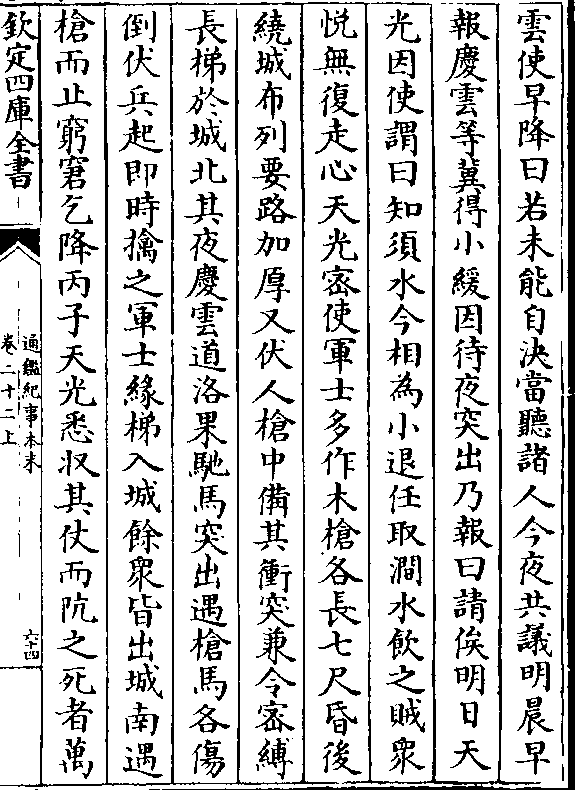 雲使早降曰若未能自決當聽諸人今夜共議明晨早
報慶雲等冀得小緩因待夜突出乃報曰請俟明日天
光因使謂曰知須水今相為小退任取澗水飲之賊衆
悦無復走心天光密使軍士多作木槍各長七尺昏後
繞城布列要路加厚又伏人槍中備其衝突兼令密縛
長梯於城北其夜慶雲道洛果馳馬突出遇槍馬各傷
倒伏兵起即時擒之軍士緣梯入城餘衆皆出城南遇
槍而止窮窘乞降丙子天光悉收其仗而阬之死者萬
欽定四庫全書
通鑑紀事本末
卷二十二上
六十四